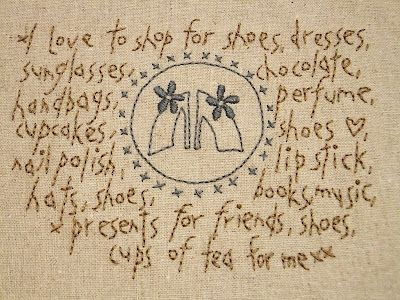 x I love to shop for shoes, dresses,
sunglasses, chocolate,
handbags, perfume,
cupcakes, shoes ♡,
nail polish, lipstick,
hats, shoes, books, music,
x presents for friends, shoes,
cups of tea for me xx